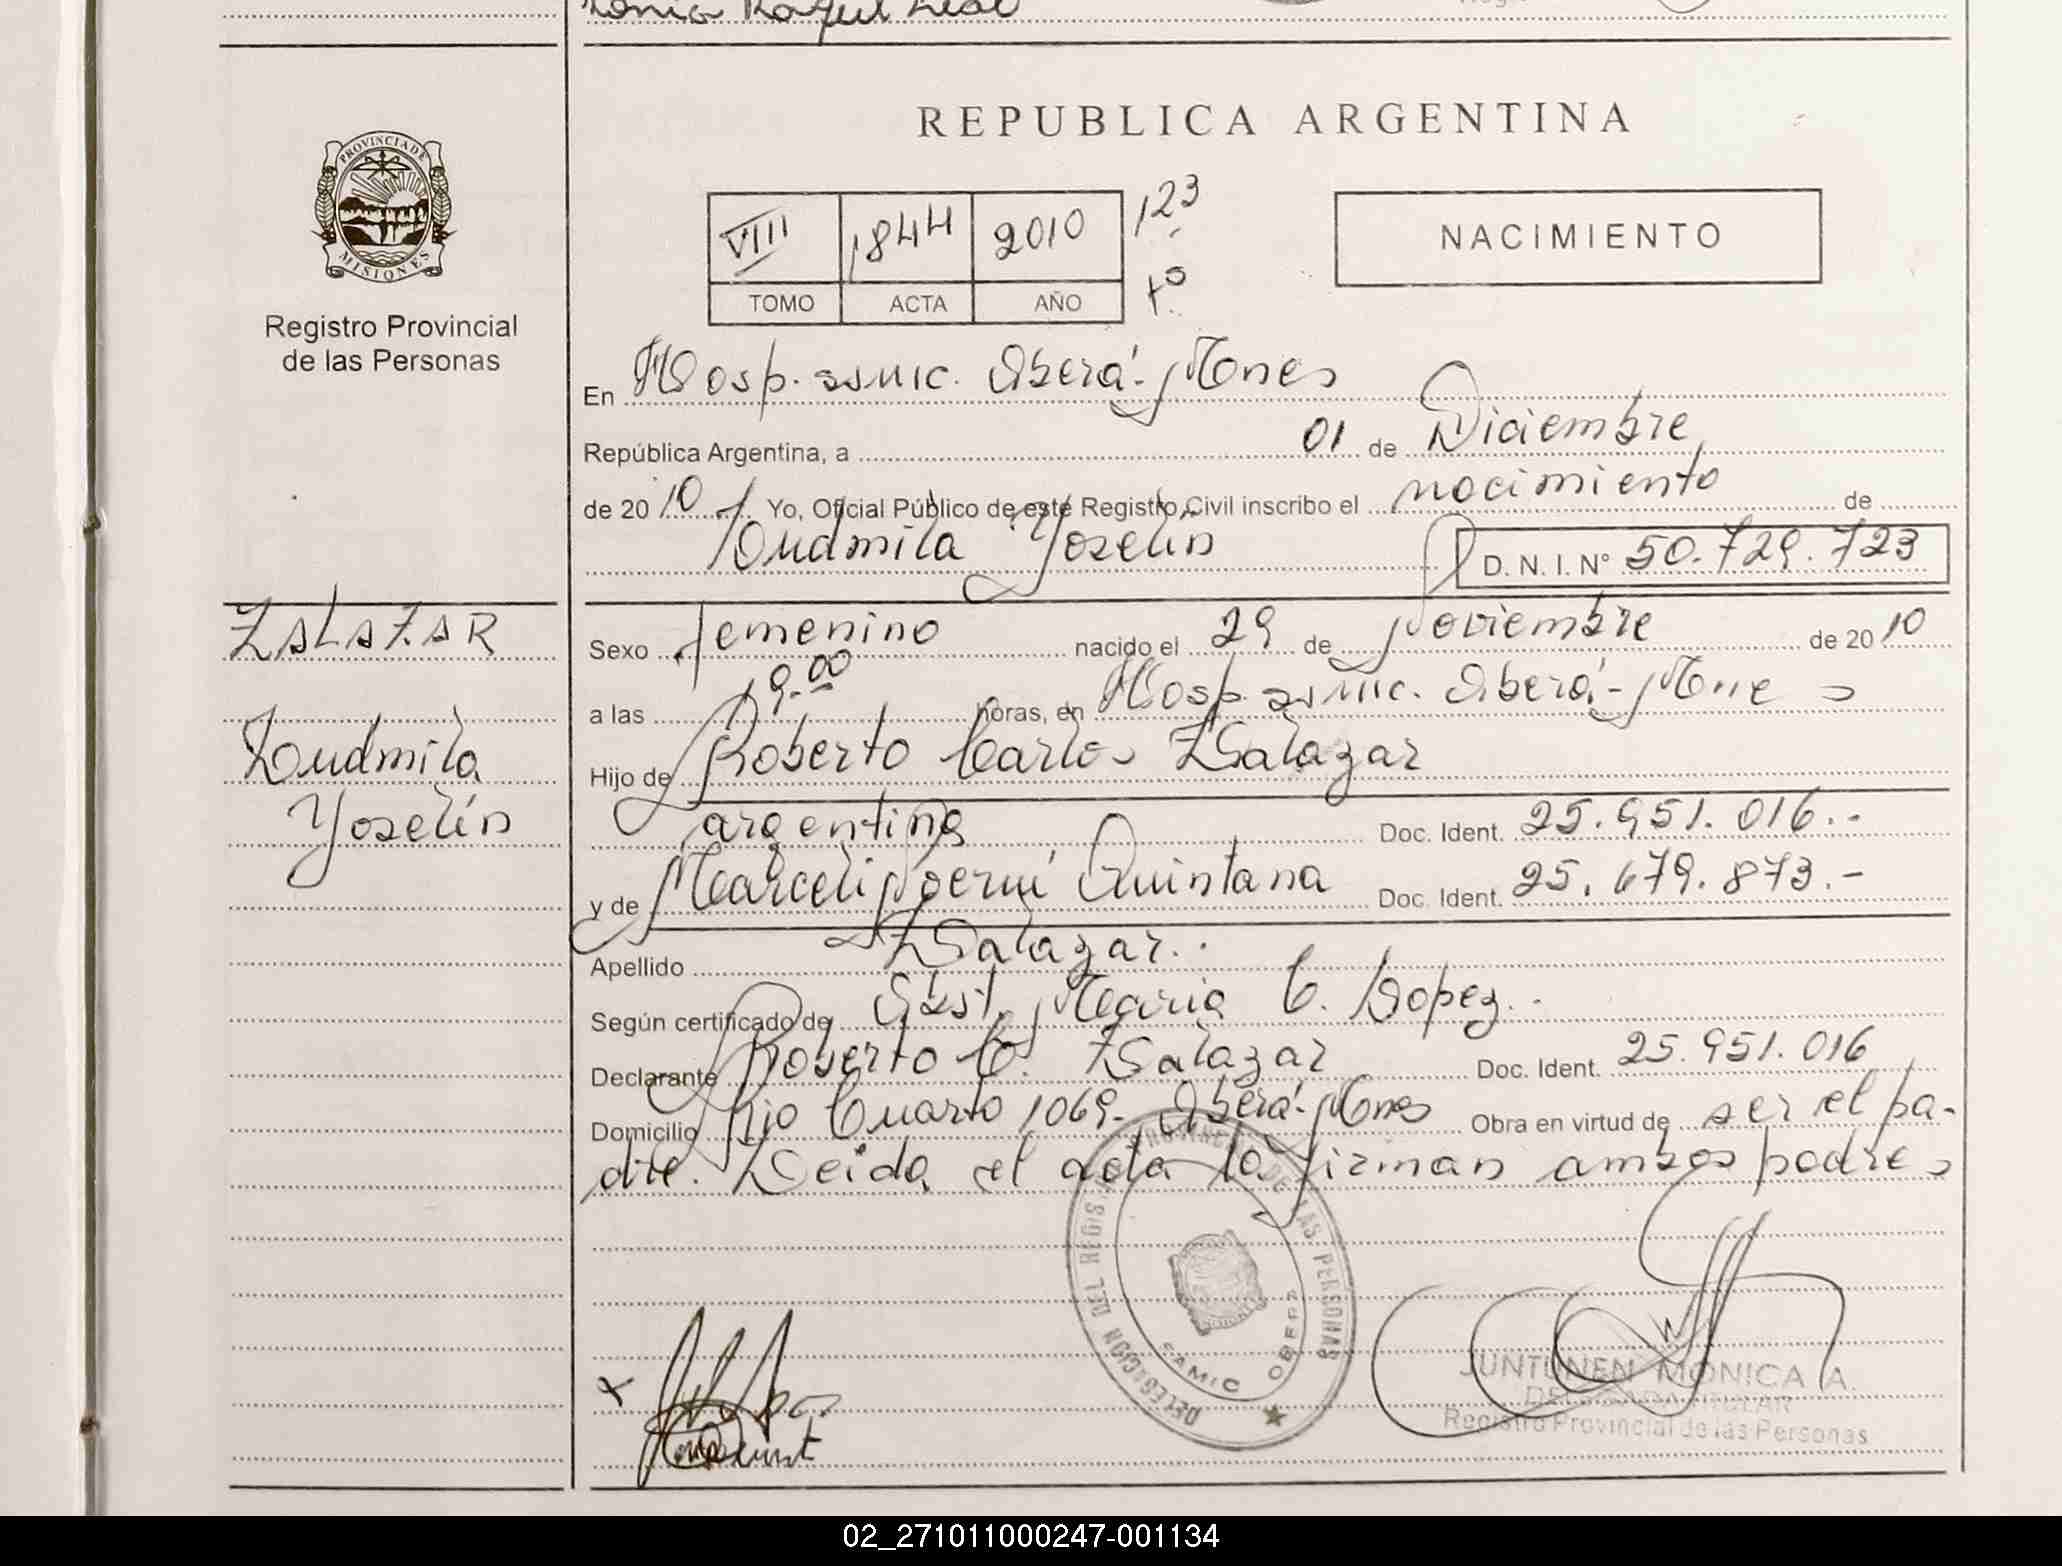 REPUBLICA ARGENTINA
PROVINCIA DE
MISIONES
Registro Provincial
de las Personas
VIII 1844 2010 123
TOMO ACTA AÑO
NACIMIENTO
En Hosp. SAMIC. Oberá - Mnes
República Argentina, a 01 de Diciembre
de 20 10 Yo, Oficial Público de este Registro Civil inscribo el nacimiento de
Ludmila Yoselin D. N. I. N° 50.729.723
ZALAZAR
Ludmila
Yoselin
Sexo femenino nacido el 29 de Noviembre de 20 10
a las 19.00 horas, en Hosp. SAMIC. Oberá - Mnes
Hijo de Roberto Carlos Zalazar
argentino Doc. Ident. 25.951.016.-
y de Marceli Noemí Quintana Doc. Ident. 25.679.873.-
Apellido Zalazar.
Según certificado de Obst. Maria C. Lopez.
Declarante Roberto C. Zalazar Doc. Ident. 25.951.016
Domicilio Rio Cuarto 1069 - Oberá - Mnes Obra en virtud de ser el pa-
dre. Leida el acta la firman ambos padres
DELEGACION DEL REGISTRO PROVINCIAL DE LAS PERSONAS
SAMIC OBERA
JUNTUNEN MONICA A.
DELEGADA TITULAR
Registro Provincial de las Personas
02_271011000247-001134